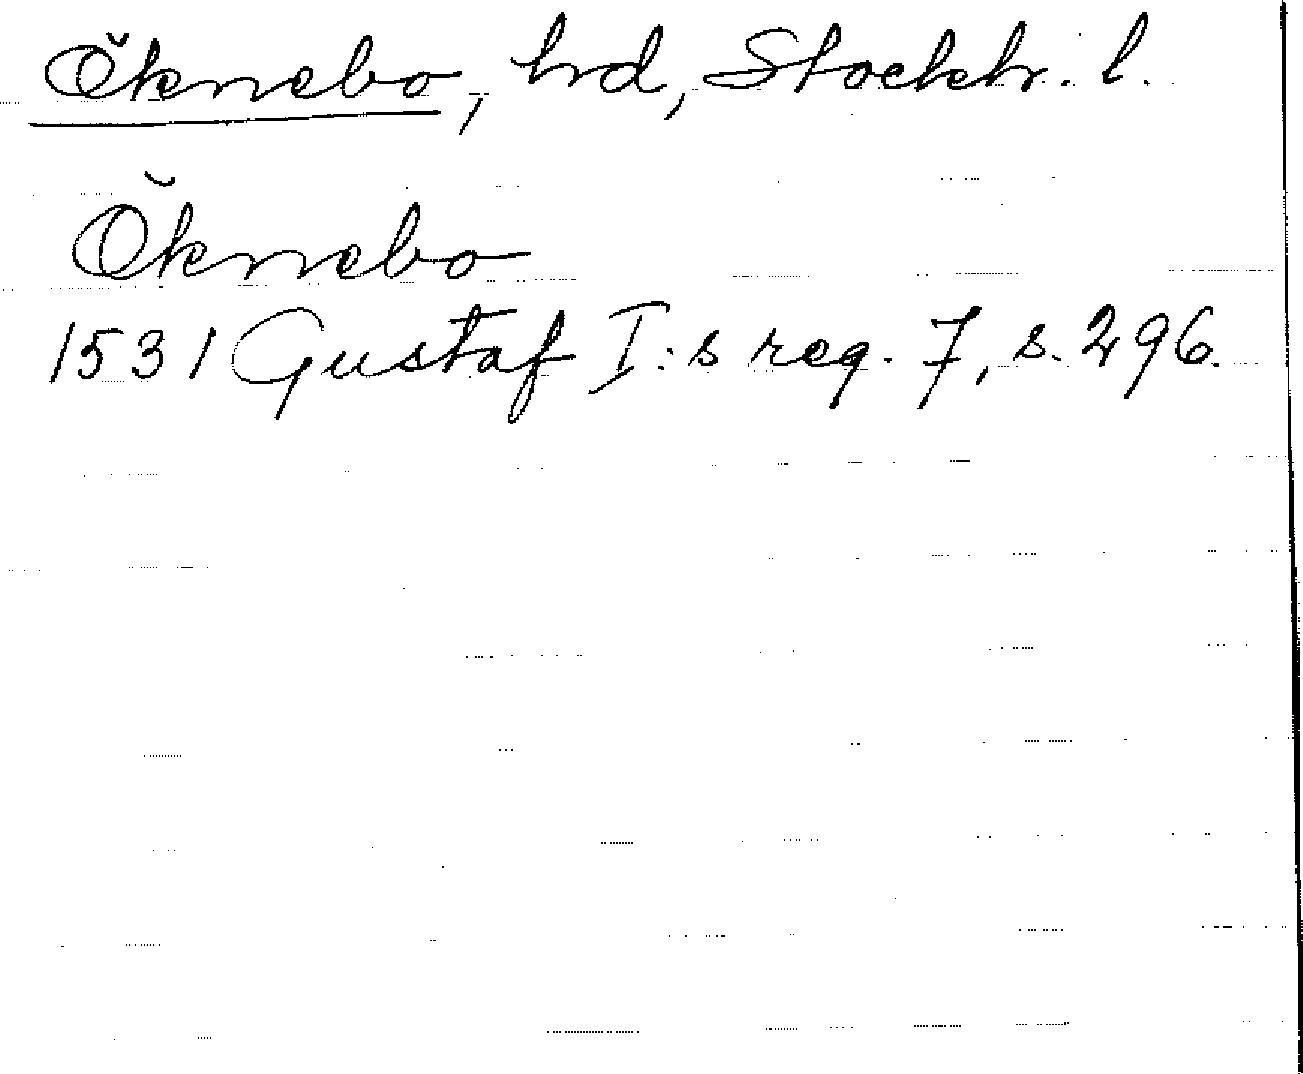 Öknebo, hd, Stockh. l.
Öknebo
1531 Gustaf I:s reg. 7, s. 296.